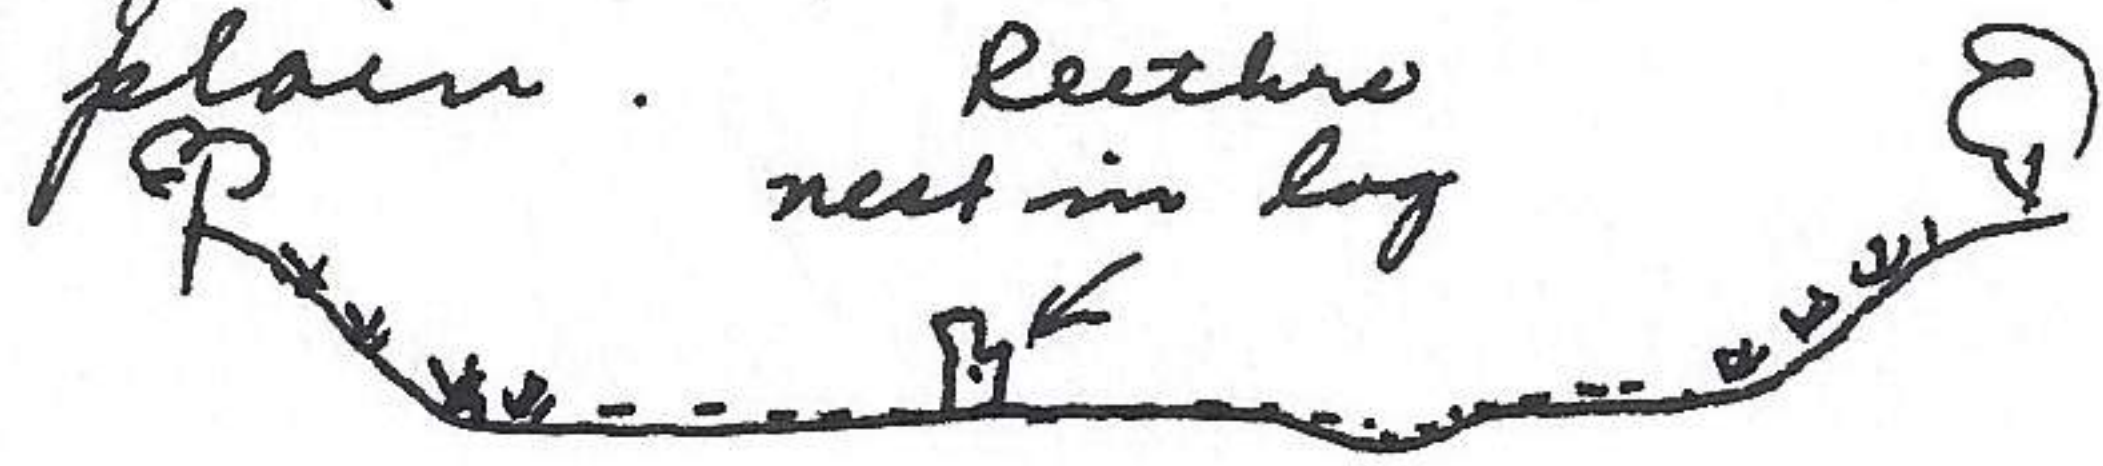 plain.
Reethro
nest in log